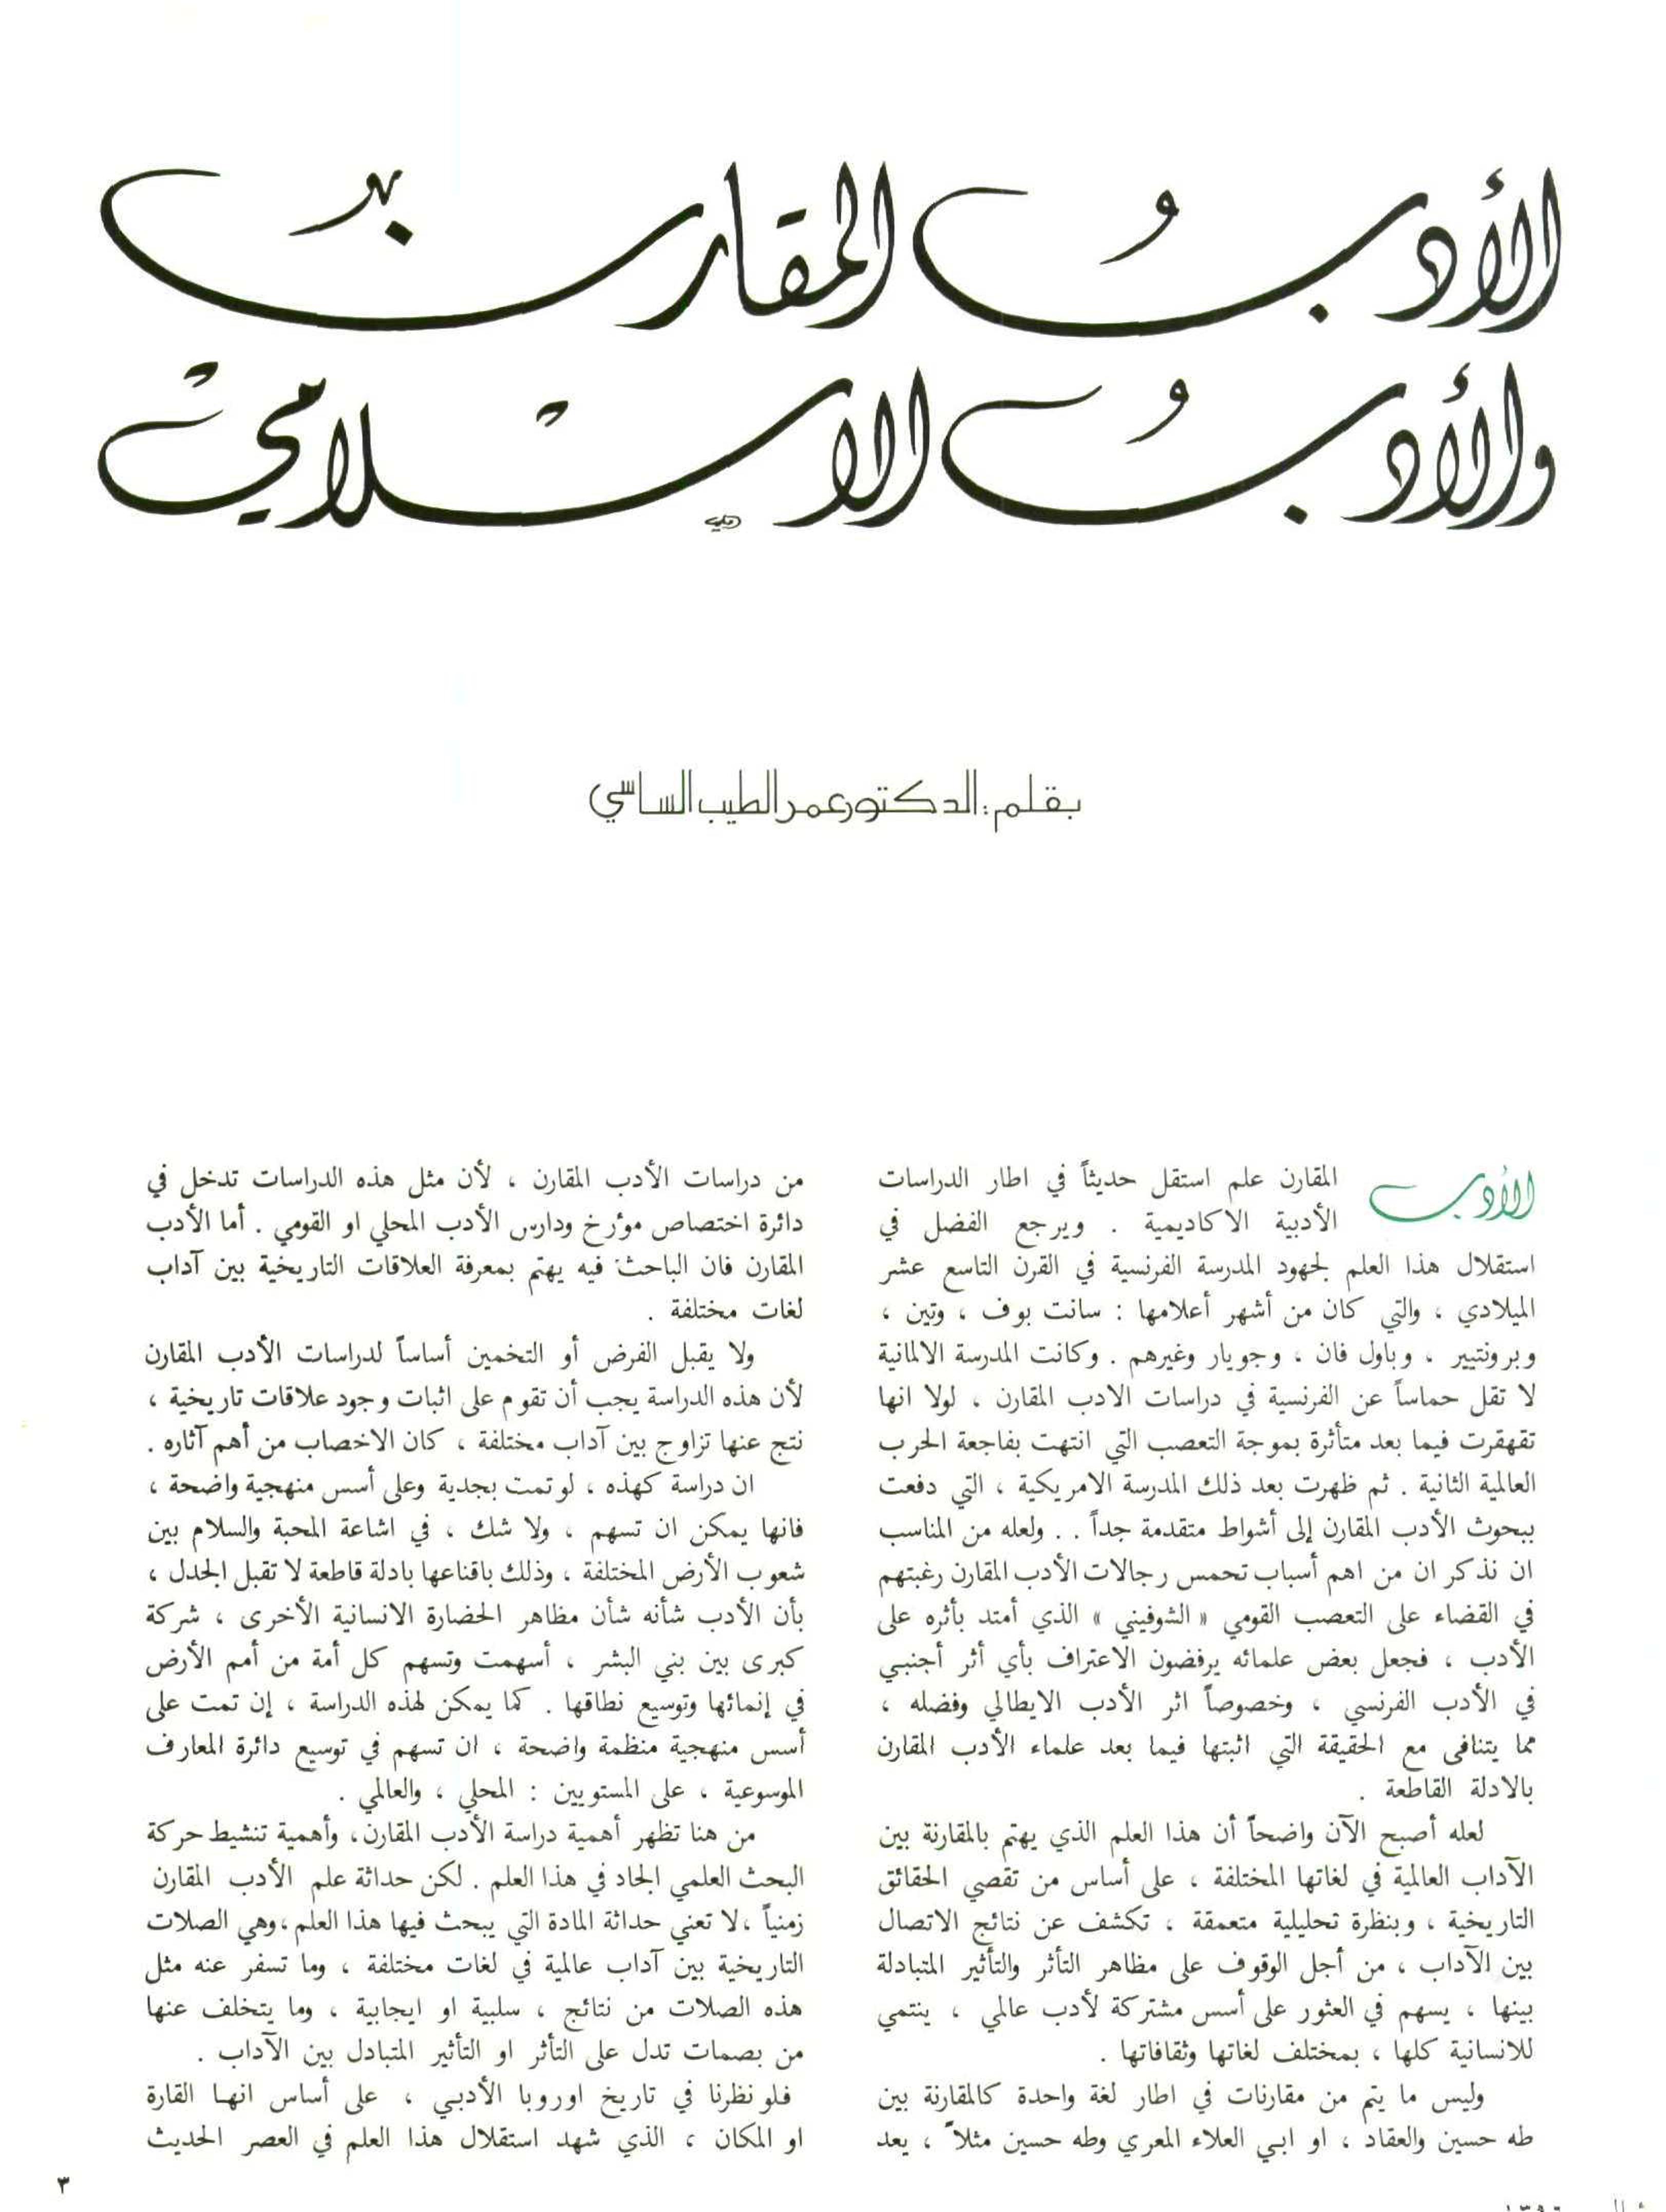 الأدبُ المقارنُ
والأدبُ الاسلاميْ
بقلم: الدكتور عمر الطيب الساسي
الأدب المقارن علم استقل حديثاً في اطار الدراسات
الأدبية الاكاديمية . ويرجع الفضل في
استقلال هذا العلم لجهود المدرسة الفرنسية في القرن التاسع عشر
الميلادي ، والتي كان من أشهر أعلامها : سانت بوف ، وتين ،
وبرونتيير ، وباول فان ، وجويار وغيرهم . وكانت المدرسة الالمانية
لا تقل حماساً عن الفرنسية في دراسات الادب المقارن ، لولا انها
تقهقرت فيما بعد متأثرة بموجة التعصب التي انتهت بفاجعة الحرب
العالمية الثانية . ثم ظهرت بعد ذلك المدرسة الامريكية ، التي دفعت
ببحوث الأدب المقارن إلى أشواط متقدمة جداً . . ولعله من المناسب
ان نذكر ان من اهم أسباب تحمس رجالات الأدب المقارن رغبتهم
في القضاء على التعصب القومي « الشوفيني » الذي أمتد بأثره على
الأدب ، فجعل بعض علمائه يرفضون الاعتراف بأي أثر أجنبي
في الأدب الفرنسي ، وخصوصاً اثر الأدب الايطالي وفضله ،
مما يتنافى مع الحقيقة التي اثبتها فيما بعد علماء الأدب المقارن
بالادلة القاطعة .
لعله أصبح الآن واضحاً أن هذا العلم الذي يهتم بالمقارنة بين
الآداب العالمية في لغاتها المختلفة ، على أساس من تقصي الحقائق
التاريخية ، وبنظرة تحليلية متعمقة ، تكشف عن نتائج الاتصال
بين الآداب ، من أجل الوقوف على مظاهر التأثر والتأثير المتبادلة
بينها ، يسهم في العثور على أسس مشتركة لأدب عالمي ، ينتمي
للانسانية كلها ، بمختلف لغاتها وثقافاتها .
وليس ما يتم من مقارنات في اطار لغة واحدة كالمقارنة بين
طه حسين والعقاد ، او ابي العلاء المعري وطه حسين مثلاً ، يعد
من دراسات الأدب المقارن ، لأن مثل هذه الدراسات تدخل في
دائرة اختصاص مؤرخ ودارس الأدب المحلي او القومي . أما الأدب
المقارن فان الباحث فيه يهتم بمعرفة العلاقات التاريخية بين آداب
لغات مختلفة .
ولا يقبل الفرض أو التخمين أساساً لدراسات الأدب المقارن
لأن هذه الدراسة يجب أن تقوم على اثبات وجود علاقات تاريخية ،
نتج عنها تزاوج بين آداب مختلفة ، كان الاخصاب من أهم آثاره .
ان دراسة كهذه ، لو تمت بجدية وعلى أسس منهجية واضحة ،
فانها يمكن ان تسهم ، ولا شك ، في اشاعة المحبة والسلام بين
شعوب الأرض المختلفة ، وذلك باقناعها بادلة قاطعة لا تقبل الجدل ،
بأن الأدب شأنه شأن مظاهر الحضارة الانسانية الأخرى ، شركة
كبرى بين بني البشر ، أسهمت وتسهم كل أمة من أمم الأرض
في إنمائها وتوسيع نطاقها . كما يمكن لهذه الدراسة ، إن تمت على
أسس منهجية منظمة واضحة ، ان تسهم في توسيع دائرة المعارف
الموسوعية ، على المستويين : المحلي ، والعالمي .
من هنا تظهر أهمية دراسة الأدب المقارن، وأهمية تنشيط حركة
البحث العلمي الجاد في هذا العلم . لكن حداثة علم الأدب المقارن
زمنياً ، لا تعني حداثة المادة التي يبحث فيها هذا العلم، وهي الصلات
التاريخية بين آداب عالمية في لغات مختلفة ، وما تسفر عنه مثل
هذه الصلات من نتائج ، سلبية او ايجابية ، وما يتخلف عنها
من بصمات تدل على التأثر او التأثير المتبادل بين الآداب .
فلو نظرنا في تاريخ اوروبا الأدبي ، على أساس انها القارة
او المكان ، الذي شهد استقلال هذا العلم في العصر الحديث
٣